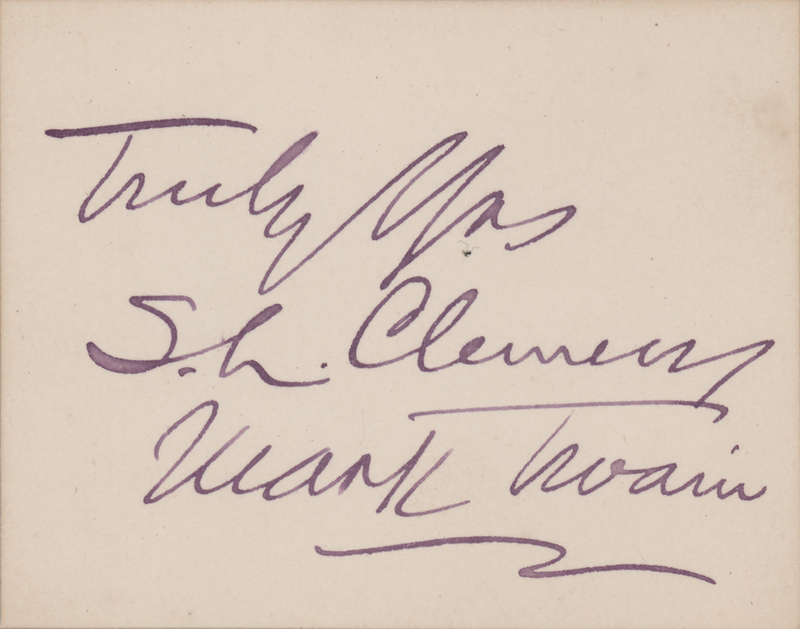 Truly Yrs
S. L. Clemens
Mark Twain